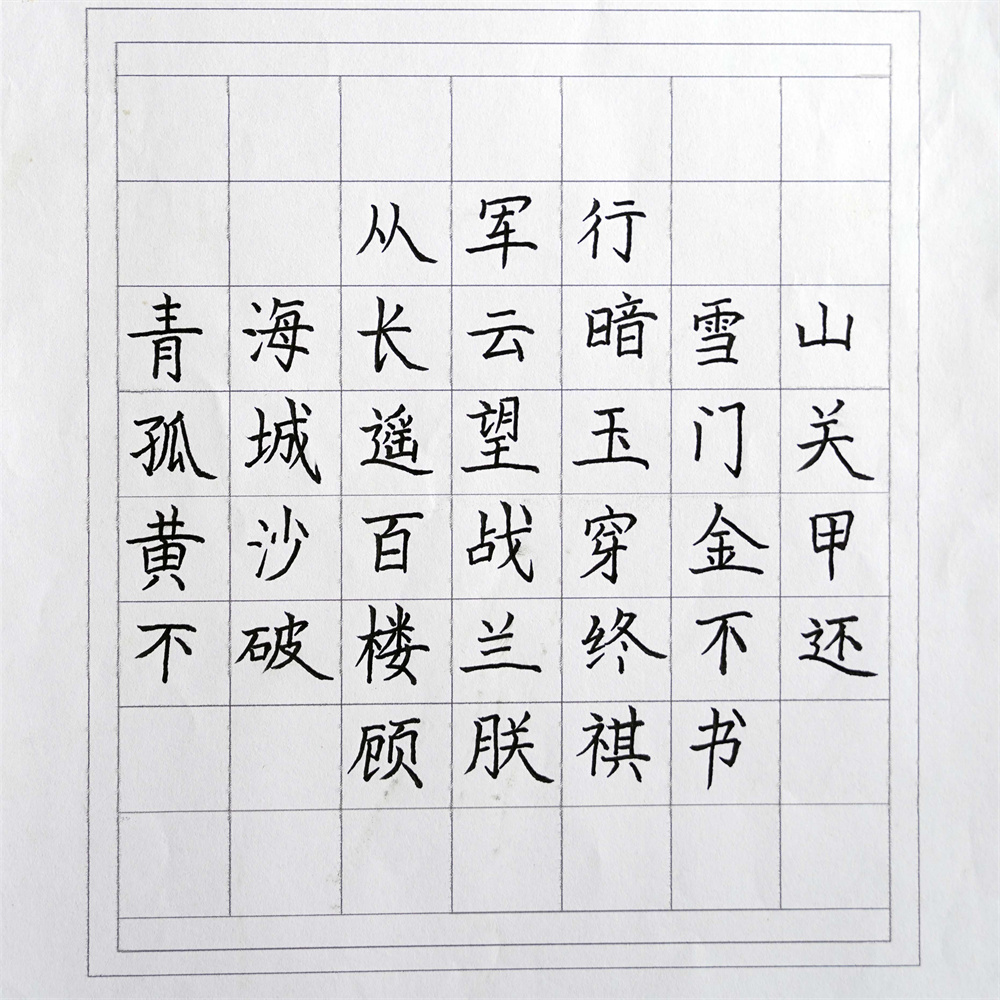 从军行
青海长云暗雪山
孤城遥望玉门关
黄沙百战穿金甲
不破楼兰终不还
顾朕祺书